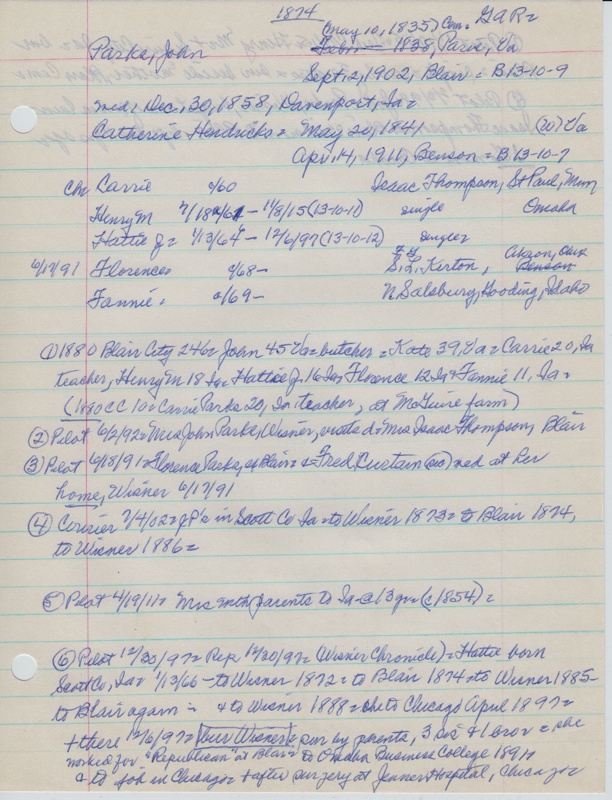 1874
(May 10, 1835) Com. G.A.R.=
Parks, John Febr 1838, Paris, Va
Sept, 12, 1902, Blair = B 13-10-9
med: Dec. 30, 1858, Davenport, Ia=
Catherine Hendricks = May 20, 1841 (20) Va
Apr. 14, 1911, Benson = B 13-10-7
Ch: Carrie c/60 Isaac Thompson, St Paul, Minn
Henry M 7/18 c/61 - 11/8/15 (13-10-11) single Omaha
Hattie J = 1/13/64 - 12/6/97 (13-10-12) single=
6/17/91 Florence= c/68 - F.L. S.L. Kerton, Akron, Ohio Benson
Fannie = c/69 - N Salsburg, Gooding, Idaho
① 1880 Blair City 246= John 45 Va= butcher = Kate 39, Va = Carrie 20, Ia
teacher, Henry M 18 Ia= Hattie J. 16 Ia, Florence 12 Ia & Fannie 11, Ia=
(1880 CC 10 = Carrie Parks 20, Ia teacher, at McGuire farm)
② Pilot 6/2/92= Mrs John Parks, Wisner, visits d= Mrs Isaac Thompson, Blair
③ Pilot 6/18/91= Florence Parks, of Blair= & Fred Kurtain (so) med at her
home, Wisner 6/17/91
④ Courier 7/4/02= JP's in Scott Co Ia= to Wisner 1873= to Blair 1874,
to Wisner 1886=
5 Pilot 4/19/11= Mrs with parents to Ia @ 13 yr= (c 1854)=
⑥ Pilot 12/30/97= Rep 12/20/97= (Wisner Chronicle) = Hattie born
Scott Co, Ia= 1/13/66 - to Wisner 1872= to Blair 1874= to Wisner 1885-
to Blair again = & to Wisner 1888= she to Chicago April 1897=
& there 12/6/97= bur Wisner & sur by parents, 3 sis & 1 brov = she
worked for "Republican" at Blair= to Omaha Business College 1891=
& to job in Chicago= & after surgery at Jenner Hospital, Chicago=